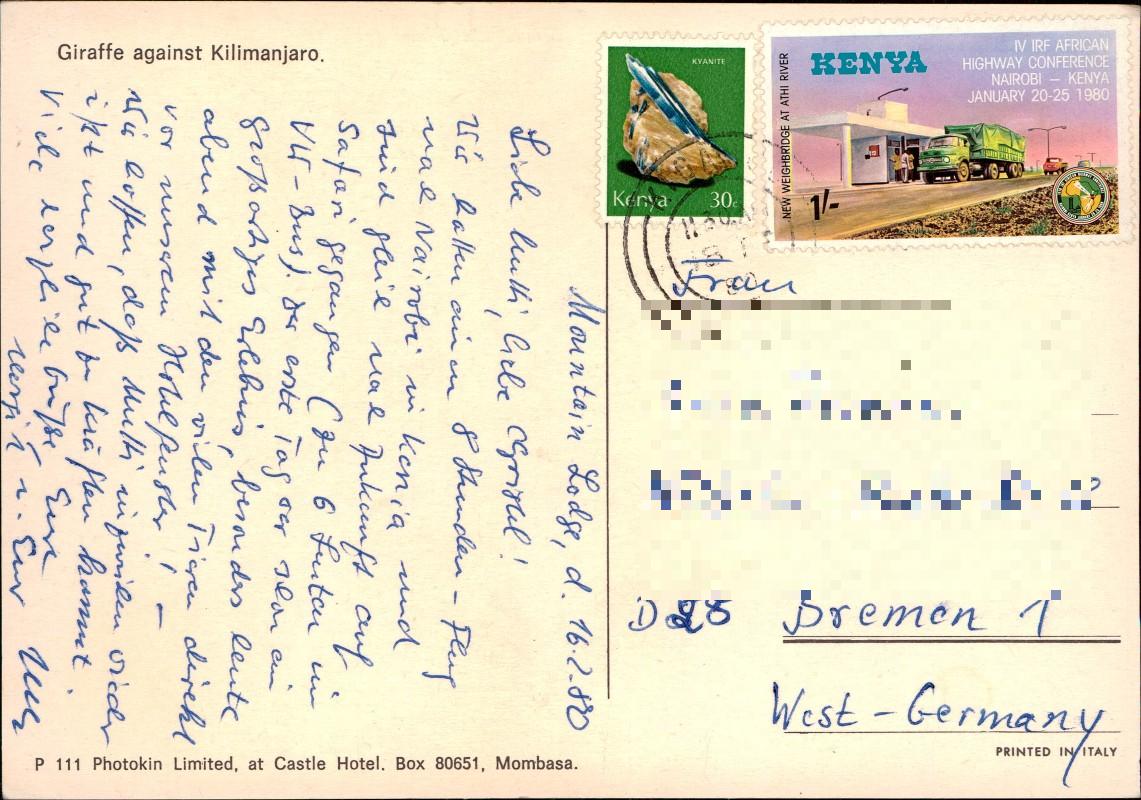 Giraffe against Kilimanjaro.
KYANITE
Kenya 30c
NEW WEIGHBRIDGE AT ATHI RIVER
KENYA
IV IRF AFRICAN
HIGHWAY CONFERENCE
NAIROBI – KENYA
JANUARY 20-25 1980
1/-
Mountain Lodge, d. 16.2.80
Liebe Mutti, liebe
Wir hatten einen 8 Stunden-Flug
nach Nairobi in Kenia und
sind gleich nach Ankunft auf
Safari gegangen (zu 6 Leuten im
VW-Bus). Der erste Tag war schon ein
großartiges Erlebnis, besonders heute
abend mit den vielen Tieren direkt
vor unserem Hotelfenster! –
Wir hoffen, daß Mutti inzwischen wieder
ißt und gut zu Kräften kommt
Viele herzliche Grüße Eure
u. Euer
Frau
Bremen 1
West-Germany
PRINTED IN ITALY
P 111 Photokin Limited, at Castle Hotel. Box 80651, Mombasa.